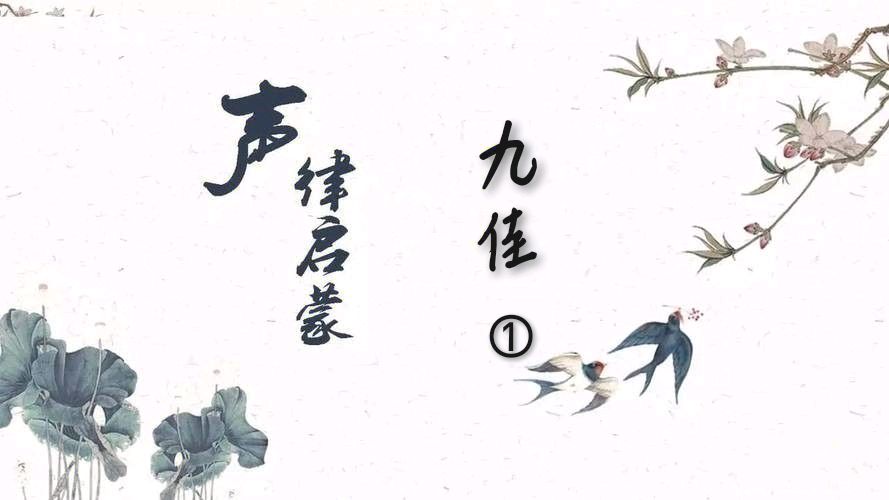 声律启蒙
九佳
①